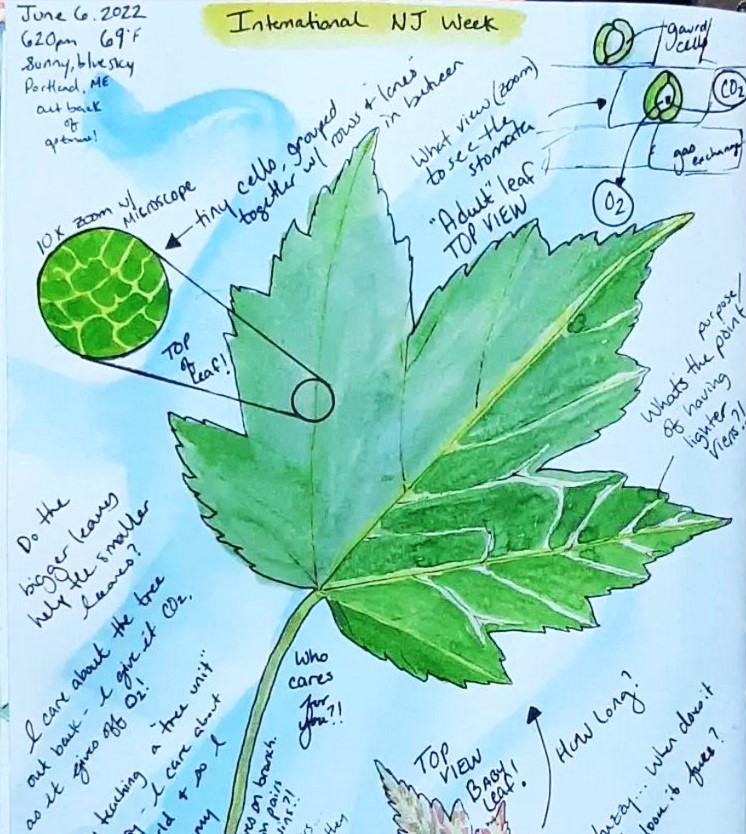 June 6. 2022
620pm 69°F
Sunny, blue sky
Portland, ME
out back
of
International NJ Week
gaurd
cells
CO2
gas exchange
O2
What view (zoom)
to see the
stomata
"Adult" leaf
TOP VIEW
tiny cells, grouped
together w/ rows + "lanes"
in between
10X zoom w/
Microscope
TOP
of
leaf!
purpose/
Whats the point
of having
lighter
viens?!
Do the
bigger leaves
help the smaller
leaves?
I care about the tree
out back - I give it CO2,
as it gives off O2!
teaching a "tree unit"
I care about
+ so I
Who
cares
for
you?!
on branch.
pairs
TOP
VIEW
BABY
leaf!
How long?
fuzzy... When does it
lose it
they